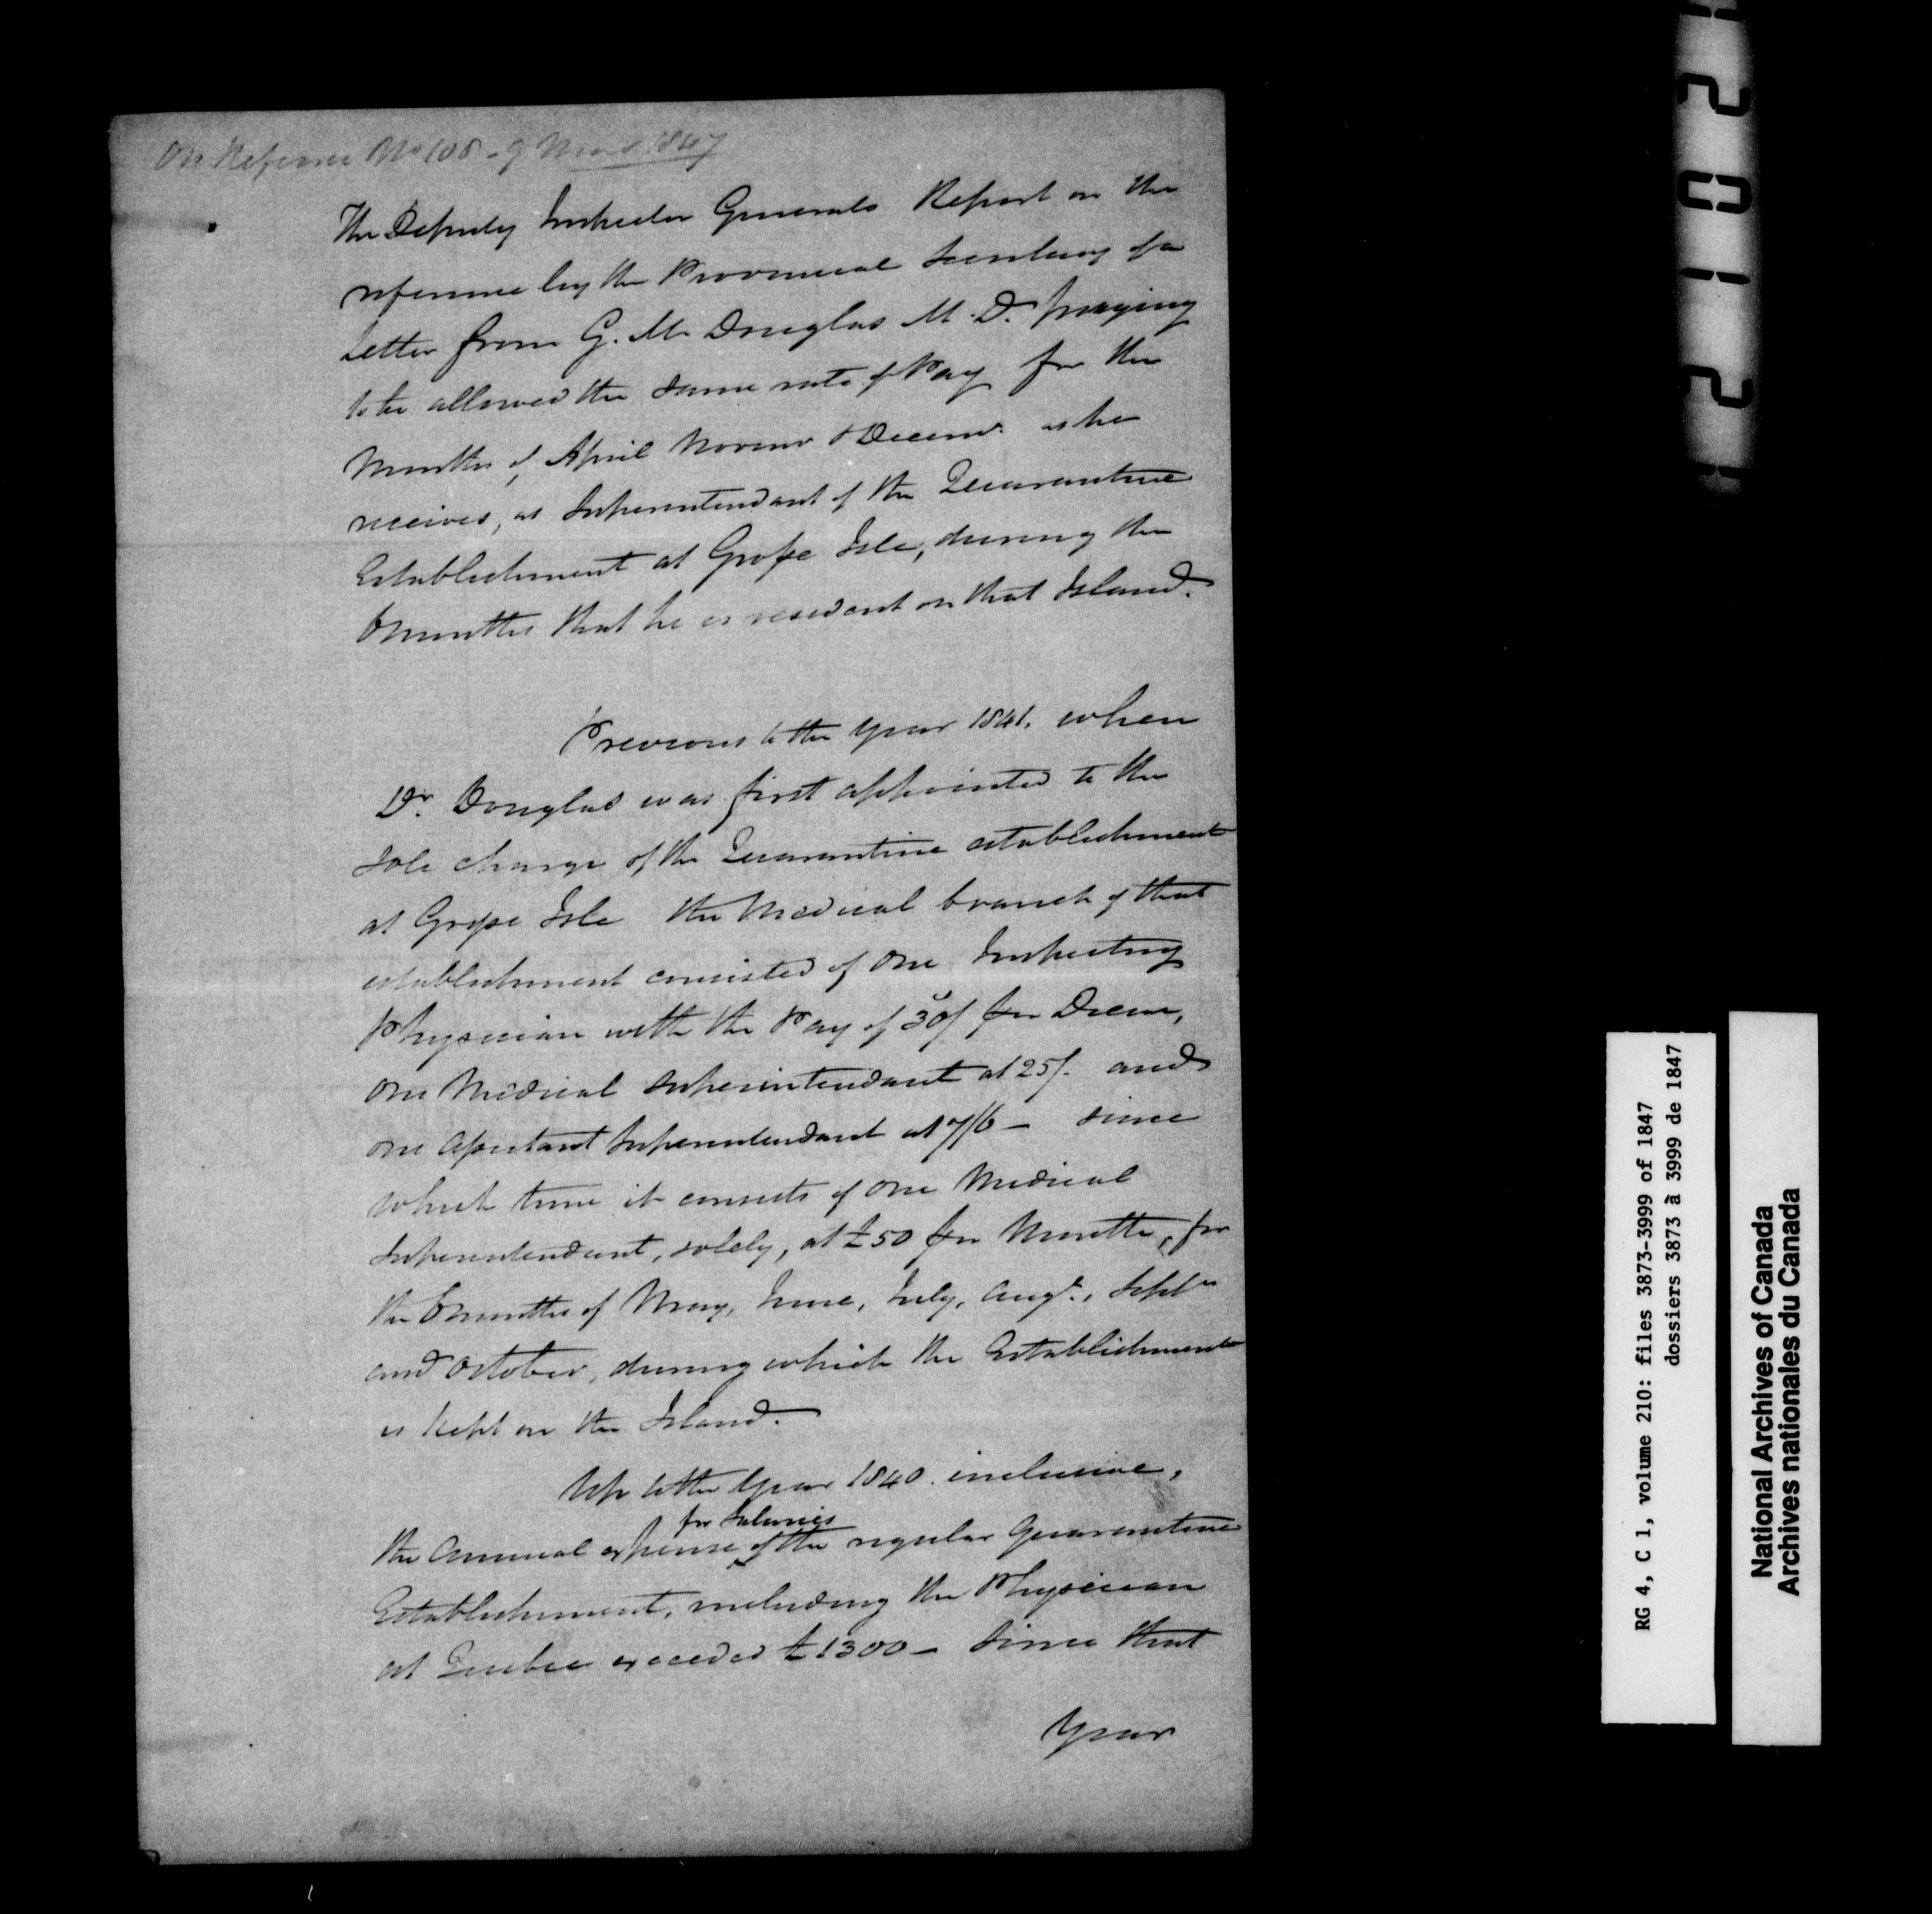 On Reference No 108 - 9 March 1847
The Deputy Inspector Generals Report on the
reference by the Provincial Secretary of a
Letter from G. M. Douglas M.D. praying
to be allowed the same rate of Pay for the
Months of April Novemr & Decemr. as he
receives, as Superintendant of the Quarantine
Establishment at Grosse Isle, during the
6 months that he is resident on that Island.
Previous to the year 1841. when
Dr. Douglas was first appointed to the
sole charge of the Quarantine establishment
at Grosse Isle the Medical branch of that
establishment consisted of One Inspecting
Physician with the Pay of 30/ per Diem,
One Medical Superintendant at 25/. and
one Assistant Superintendant at 7/6 - since
which time it consists of One Medical
Superintendant, solely, at £50 per Month, for
the 6 months of May, June, July, Augt., Septr
and October, during which the Establishment
is kept on the Island.
Up to the Year 1840. inclusive,
for Salaries
the Annual expense of the regular Quarantine
Establishment, including the Physician
at Quebec exceeded £1300 - Since that
Year
2012
RG 4, C 1, volume 210: files 3873-3999 of 1847
dossiers 3873 à 3999 de 1847
National Archives of Canada
Archives nationales du Canada